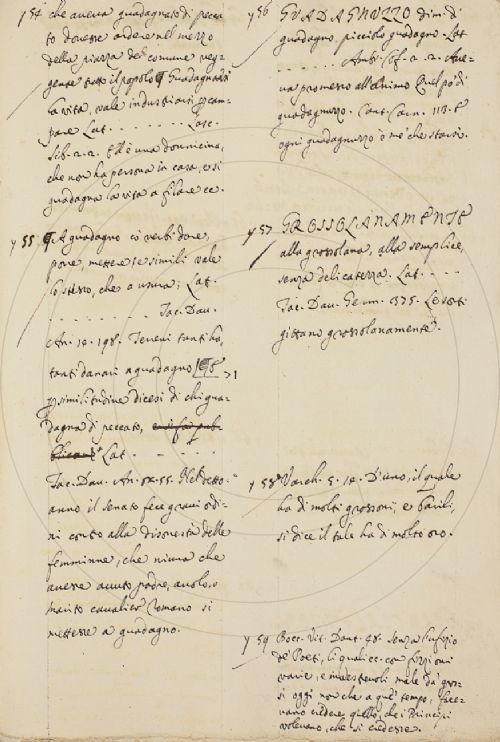 754 che aveva guadagnato di pecca-
to dovesse ardere nel mezzo
della piazza del comune veg-
gente tutto il popolo ¶ Guadagnarsi
la vita, vale industriarsi p campare
pane Lat. . . . . . . Lasc.
Sib. 2. 2. Ell'è una donnicina,
che non ha persona in casa, e si
guadagna la vita a filare ec.
755 ¶ A guadagno co' verbi dare,
porre, mettere e simili vale
lo stesso, che a usura; Lat.
. . . . . . . . Tac. Dav.
An. 14. 198. Tenevi tanti ho,
tanti danari a guadagno ¶ E
p similitudine dicesi di chi gua-
dagna di peccato,
Lat. . - - - -
Tac. Dav. An. 2. 55. Nel detto
anno il senato fece gravi ordi-
ni contro alla disonestà delle
femmine, che niuna che
avesse avuto padre, avolo, o
marito cavalier Romano si
mettesse a guadagno.
756 GUADAGNUZZO dim. di
guadagno, picciolo guadagno. Lat
. . . . . . Ambr. Cof. 2. 2. Ave-
va promesso all'animo Quel po' di
guadagnuzzo. Cant. Carn. 113. E
ogni guadagnuzzo è me che starsi.
757 GROSSOLANAMENTE
alla grossolana, alla semplice,
senza delicatezza. Lat. - - - -
Tac. Dav. Germ. 375. Le
gittano grossolanamente.
758 Varch. 5. 14. D'uno, il quale
ha di molti grossoni, e barili,
si dice il tale ha di molto oro.
759 Bocc. Vit. Dant. 48. Senza l'ufizio
de' Poeti, li quali con finzioni
varie, e maestrevoli male da' gros-
si oggi non che a quel tempo, face-
vano credere quello, che i Principi
volevano, che si credesse.